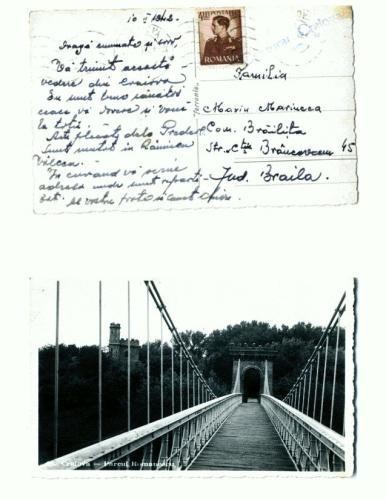 10 1942
Dragă cumnate și
Vă trimit această
vedere din Craiova
Eu sunt bine sănătos
ceea ce vă doresc și vouă
la toți.
Am plecat dela Predeal
sunt mutat în Râmnicu
Vâlcea.
În curând vă scriu
adresa unde sunt
al vostru frate
ROMANIA
Familia
Marin Marinca
Com. Brăilița
Str. C-tin Brâncoveanu 45
Jud. Braila.
Craiova — Parcul Romanescu